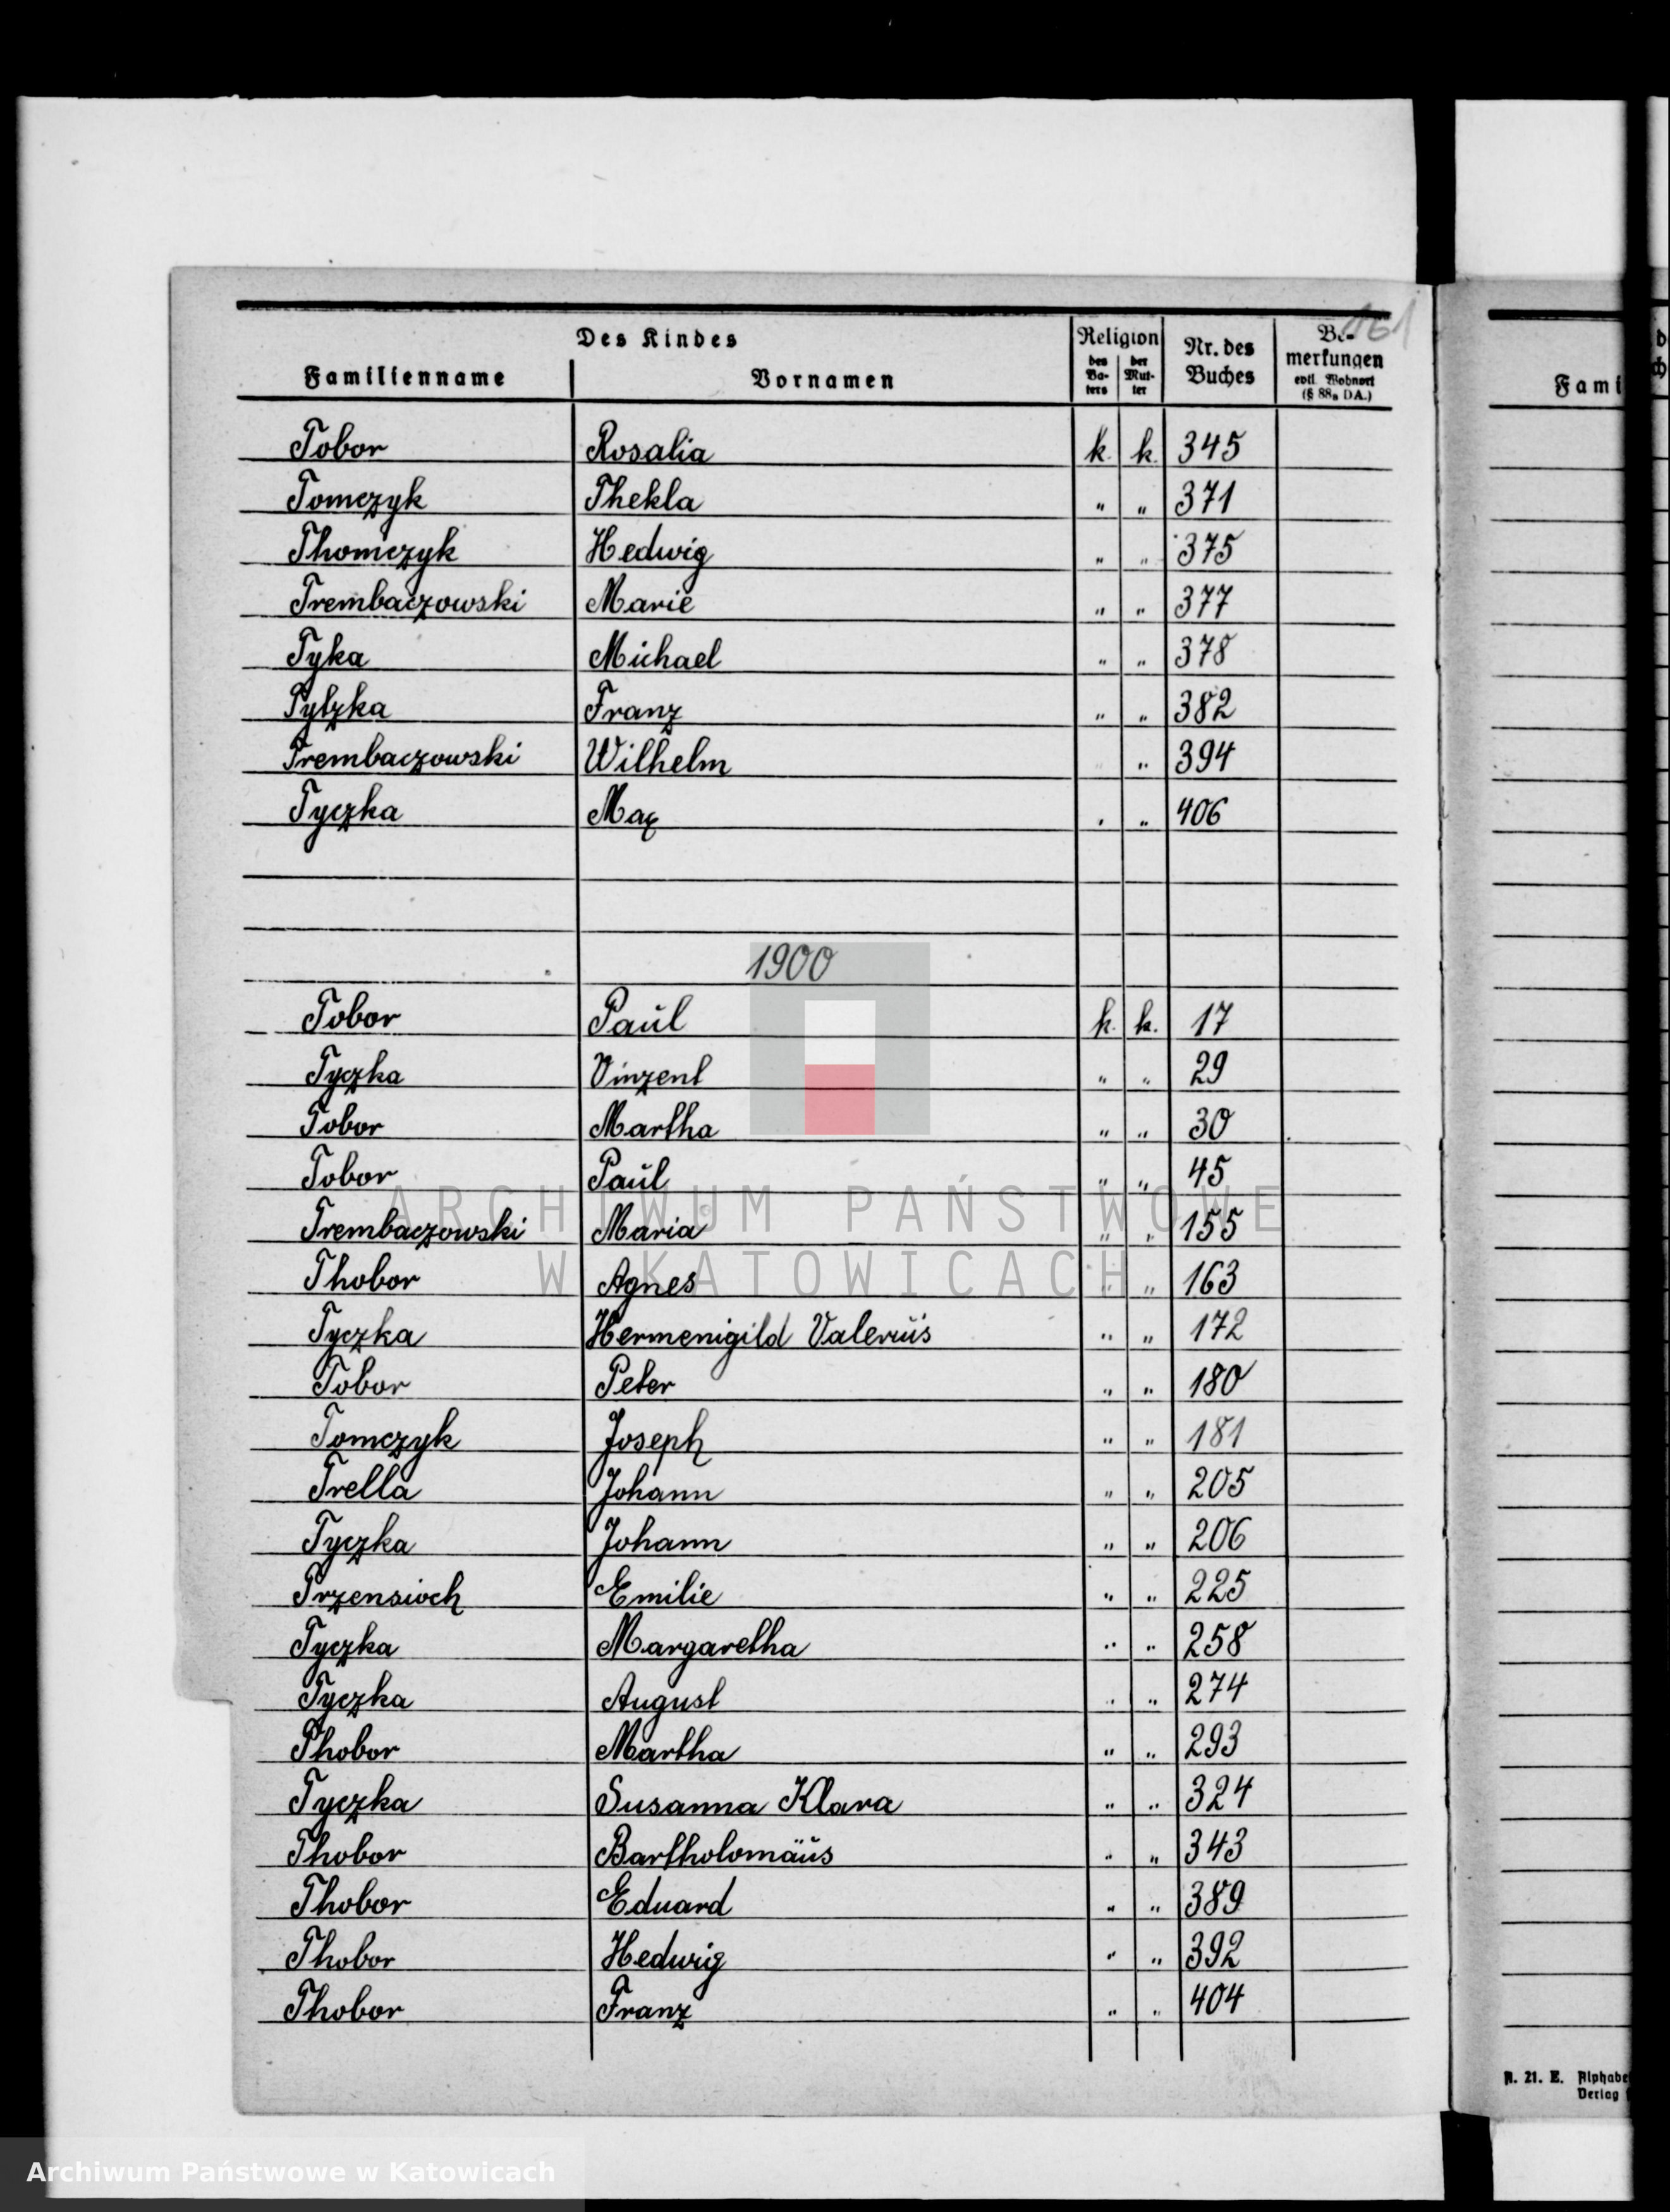 161
Des Kindes
Religion
Nr. des Buches
Be-
merkungen
evtl. Wohnort
(§ 88a DA.)
Familienname Vornamen
des Va-ters
der Mut-ter
Tobor Rosalia k. k. 345
Tomczyk Thekla " " 371
Thomczyk Hedwig " " 375
Trembaczowski Marie " " 377
Tyka Michael " " 378
Tytzka Franz " " 382
Trembaczowski Wilhelm " " 394
Tyczka Max " " 406
1900
Tobor Paŭl k. k. 17
Tyczka Vinzent " " 29
Tobor Martha " " 30
Tobor Paŭl " " 45
Trembaczowski Maria " " 155
Thobor Agnes " " 163
Tyczka Hermenigild Valeriŭs " " 172
Tobor Peter " " 180
Tomczyk Joseph " " 181
Trella Johann " " 205
Tyczka Johann " " 206
Trzensioch Emilie " " 225
Tyczka Margaretha " " 258
Tyczka August " " 274
Thobor Martha " " 293
Tyczka Susanna Klara " " 324
Thobor Bartholomäŭs " " 343
Thobor Eduard " " 389
Thobor Hedwig " " 392
Thobor Franz " " 404
ARCHIWUM PAŃSTWOWE
W KATOWICACH
Fami
A. 21. E. Alphabe
Verlag
Archiwum Państwowe w Katowicach